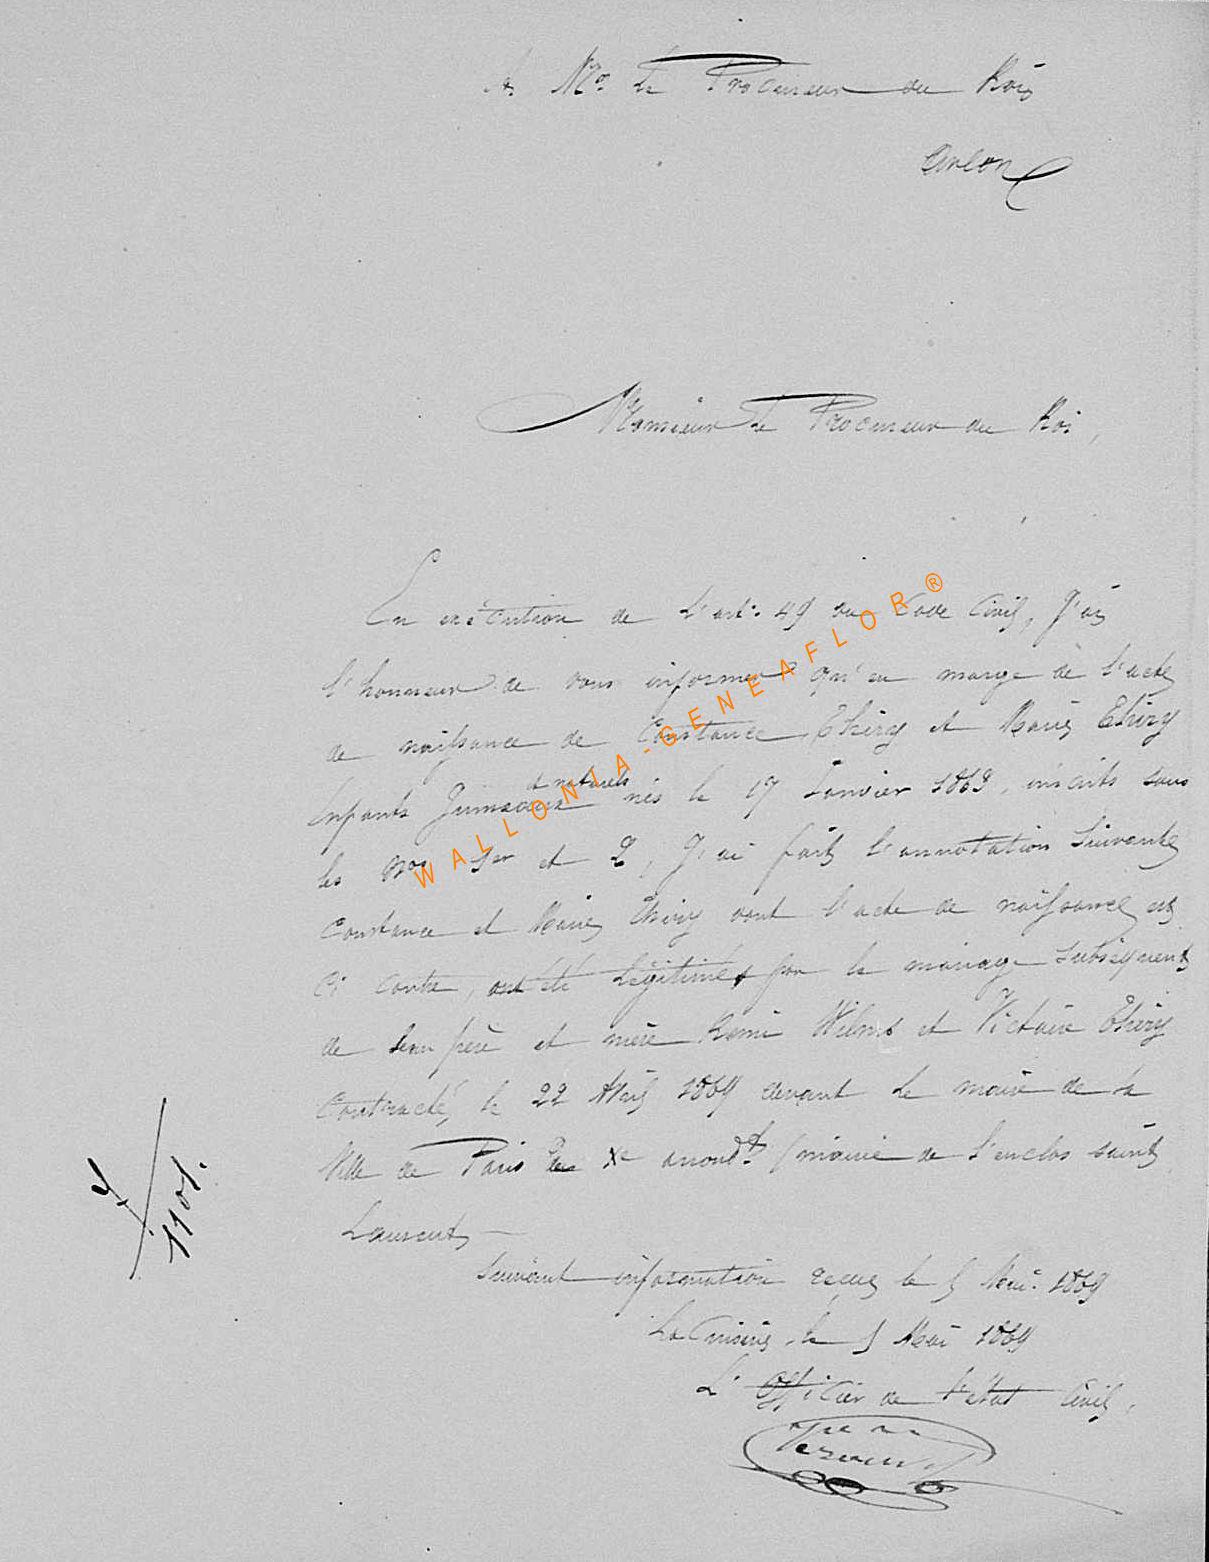 A Mr le Procureur du Roi
Arlon
Monsieur le Procureur du Roi,
En exécution de l'art. 49 du Code Civil, j'ai
l'honneur de vous informer qu'en marge de l'acte
de naissance de Constance Thiry et Marie Thiry
& naturels
Enfants Jumeaux nés le 17 Janvier 1863, inscrits sous
les nos 1er et 2, j'ai fait l'annotation suivante
Constance et Marie Thiry dont l'acte de naissance est
ci contre, ont été légitimés par le mariage subséquent
de leur père et mère Remi Wilms et Victoire Thiry
Contracté, le 22 Avril 1869 devant le maire de la
Ville de Paris Xe arrondt (mairie de l'enclos saint
Laurent
Suivant information reçue le 5 Mai 1869
La Cuisine, le 5 Mai 1869
L'Officier de l'état Civil,
4/1101.
WALLONIA-GENEAFLOR®